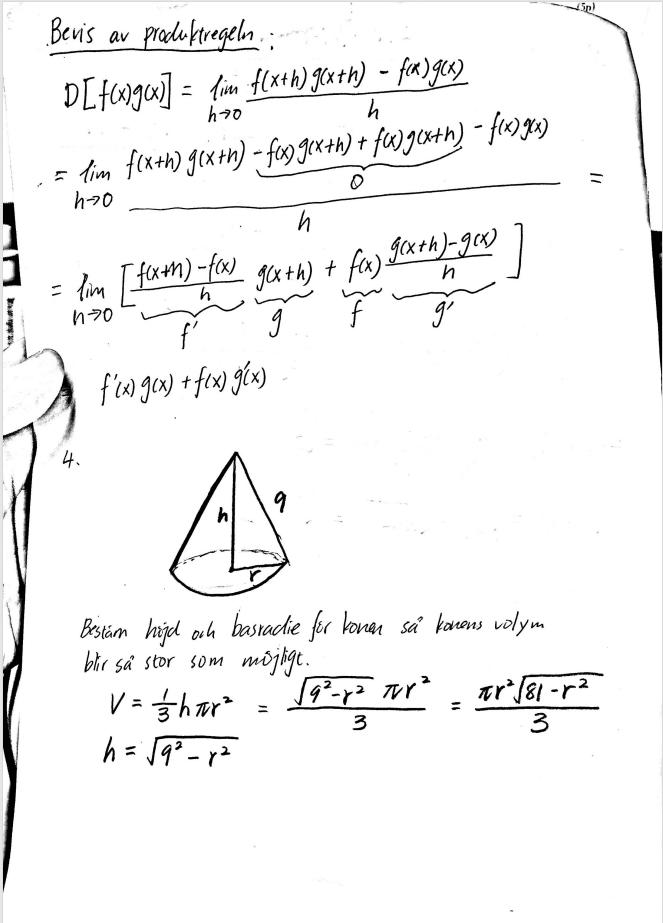 (5p)
Bevis av produktregeln:
D[f(x)g(x)] = lim h→0 f(x+h)g(x+h) - f(x)g(x) / h
= lim h→0 f(x+h)g(x+h) - f(x)g(x+h) + f(x)g(x+h) - f(x)g(x) / h =
0
= lim h→0 [ f(x+h) - f(x) / h g(x+h) + f(x) g(x+h) - g(x) / h ]
f' g f g'
f'(x)g(x) + f(x)g'(x)
4.
h 9
r
Bestäm höjd och basradie för konen så konens volym
blir så stor som möjligt.
V = 1/3 h πr² = √(9²-r²) πr² / 3 = πr²√(81-r²) / 3
h = √(9²-r²)